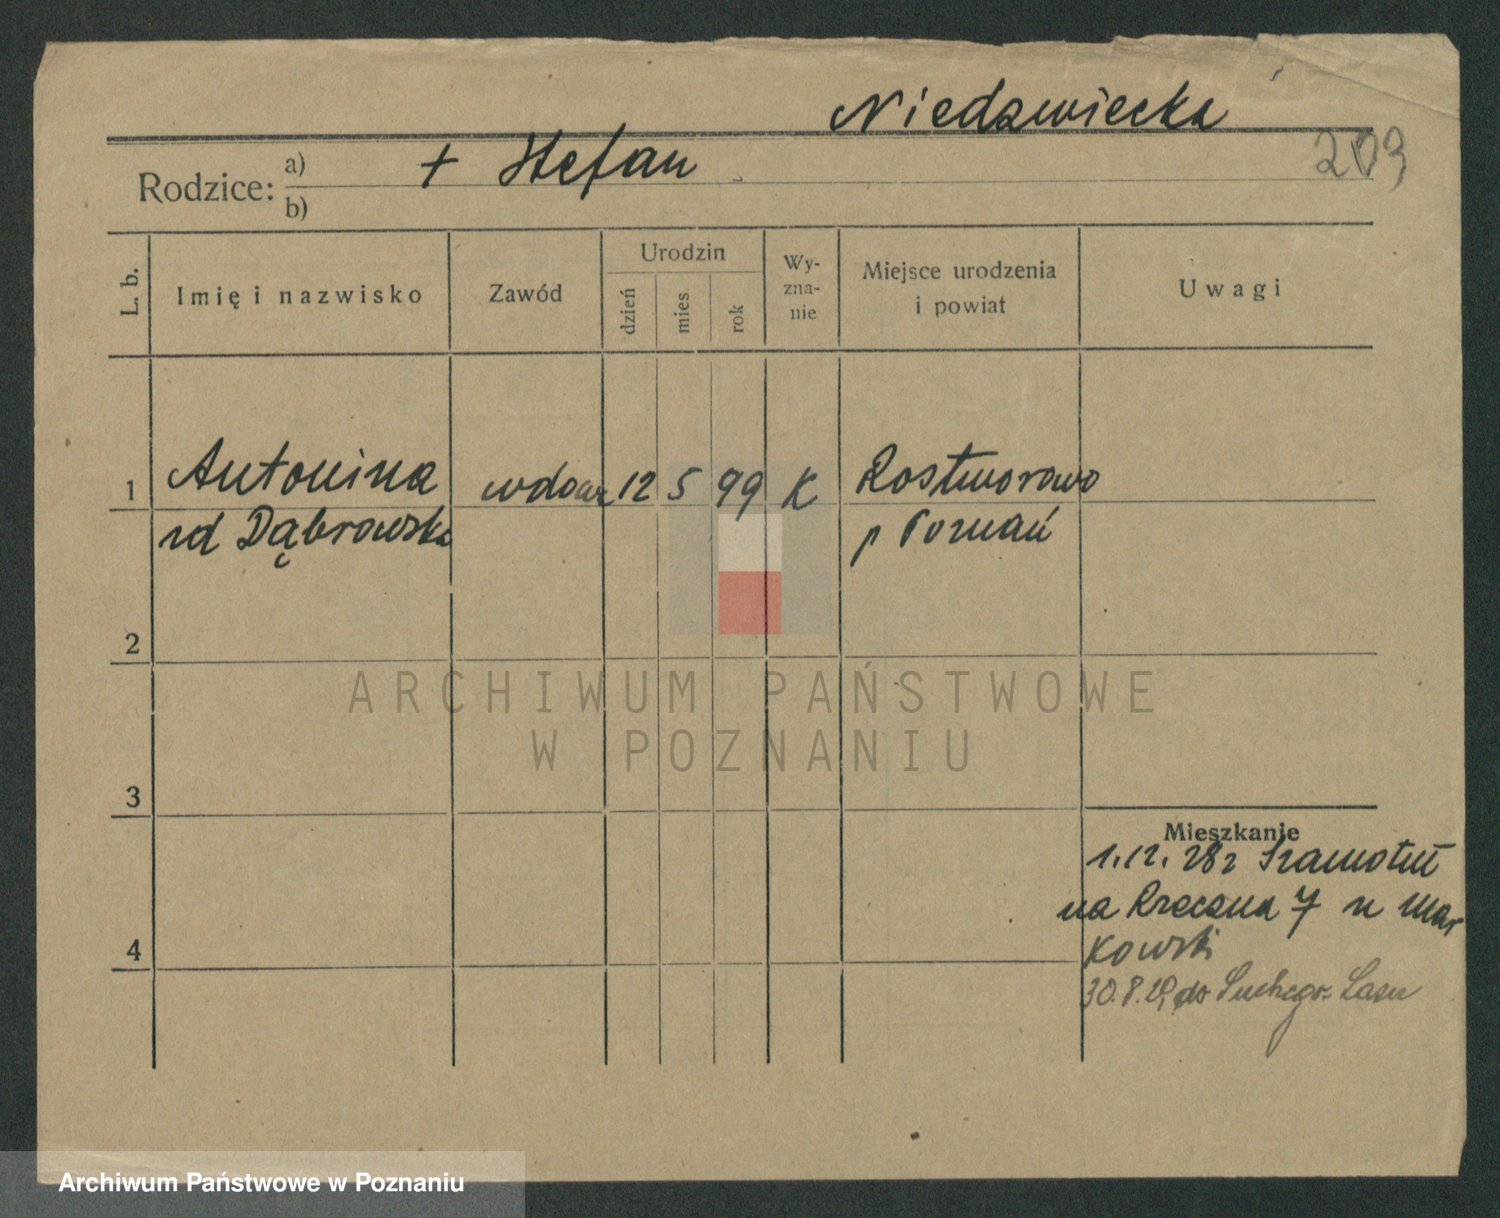 Niedzwiecka
209
Rodzice: a) + Stefan
b)
L. b.
Imię i nazwisko
Zawód
Urodzin
dzień
mies
rok
Wy-
zna-
nie
Miejsce urodzenia
i powiat
Uwagi
1 Antonina wdowa 12 5 99 K Rostworowo
rd Dąbrowska p Poznań
2
3
4
Mieszkanie
1.12.28r Szamotuł
na Rzeczna 7 u Mar
kowski
30.8.29 do Suchego-Lasu
ARCHIWUM PAŃSTWOWE
W POZNANIU
Archiwum Państwowe w Poznaniu